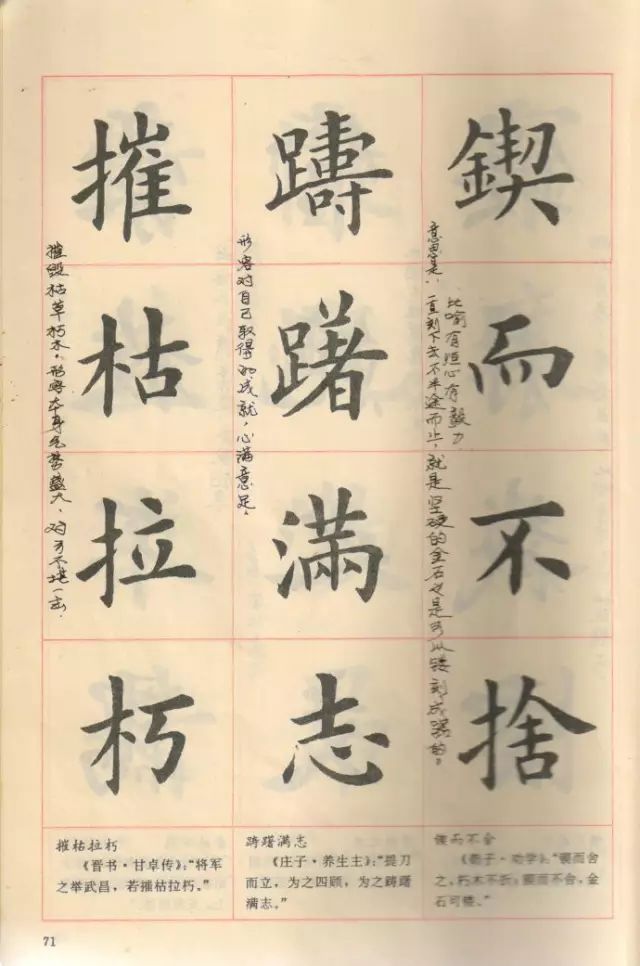 鍥而不捨
意思是：一直刻下去不半途而止，就是坚硬的金石也是可以镂刻成器的。
比喻有恒心有毅力
躊躇滿志
形容对自己取得的成就，心满意足。
摧枯拉朽
摧毁枯草朽木。形容本身气势盛大，对方不堪一击.
锲而不舍
《荀子·劝学》：“锲而舍
之，朽木不折；锲而不舍，金
石可镂。”
踌躇满志
《庄子·养生主》：“提刀
而立，为之四顾，为之踌躇
满志。”
摧枯拉朽
《晋书·甘卓传》：“将军
之举武昌，若摧枯拉朽。”
71